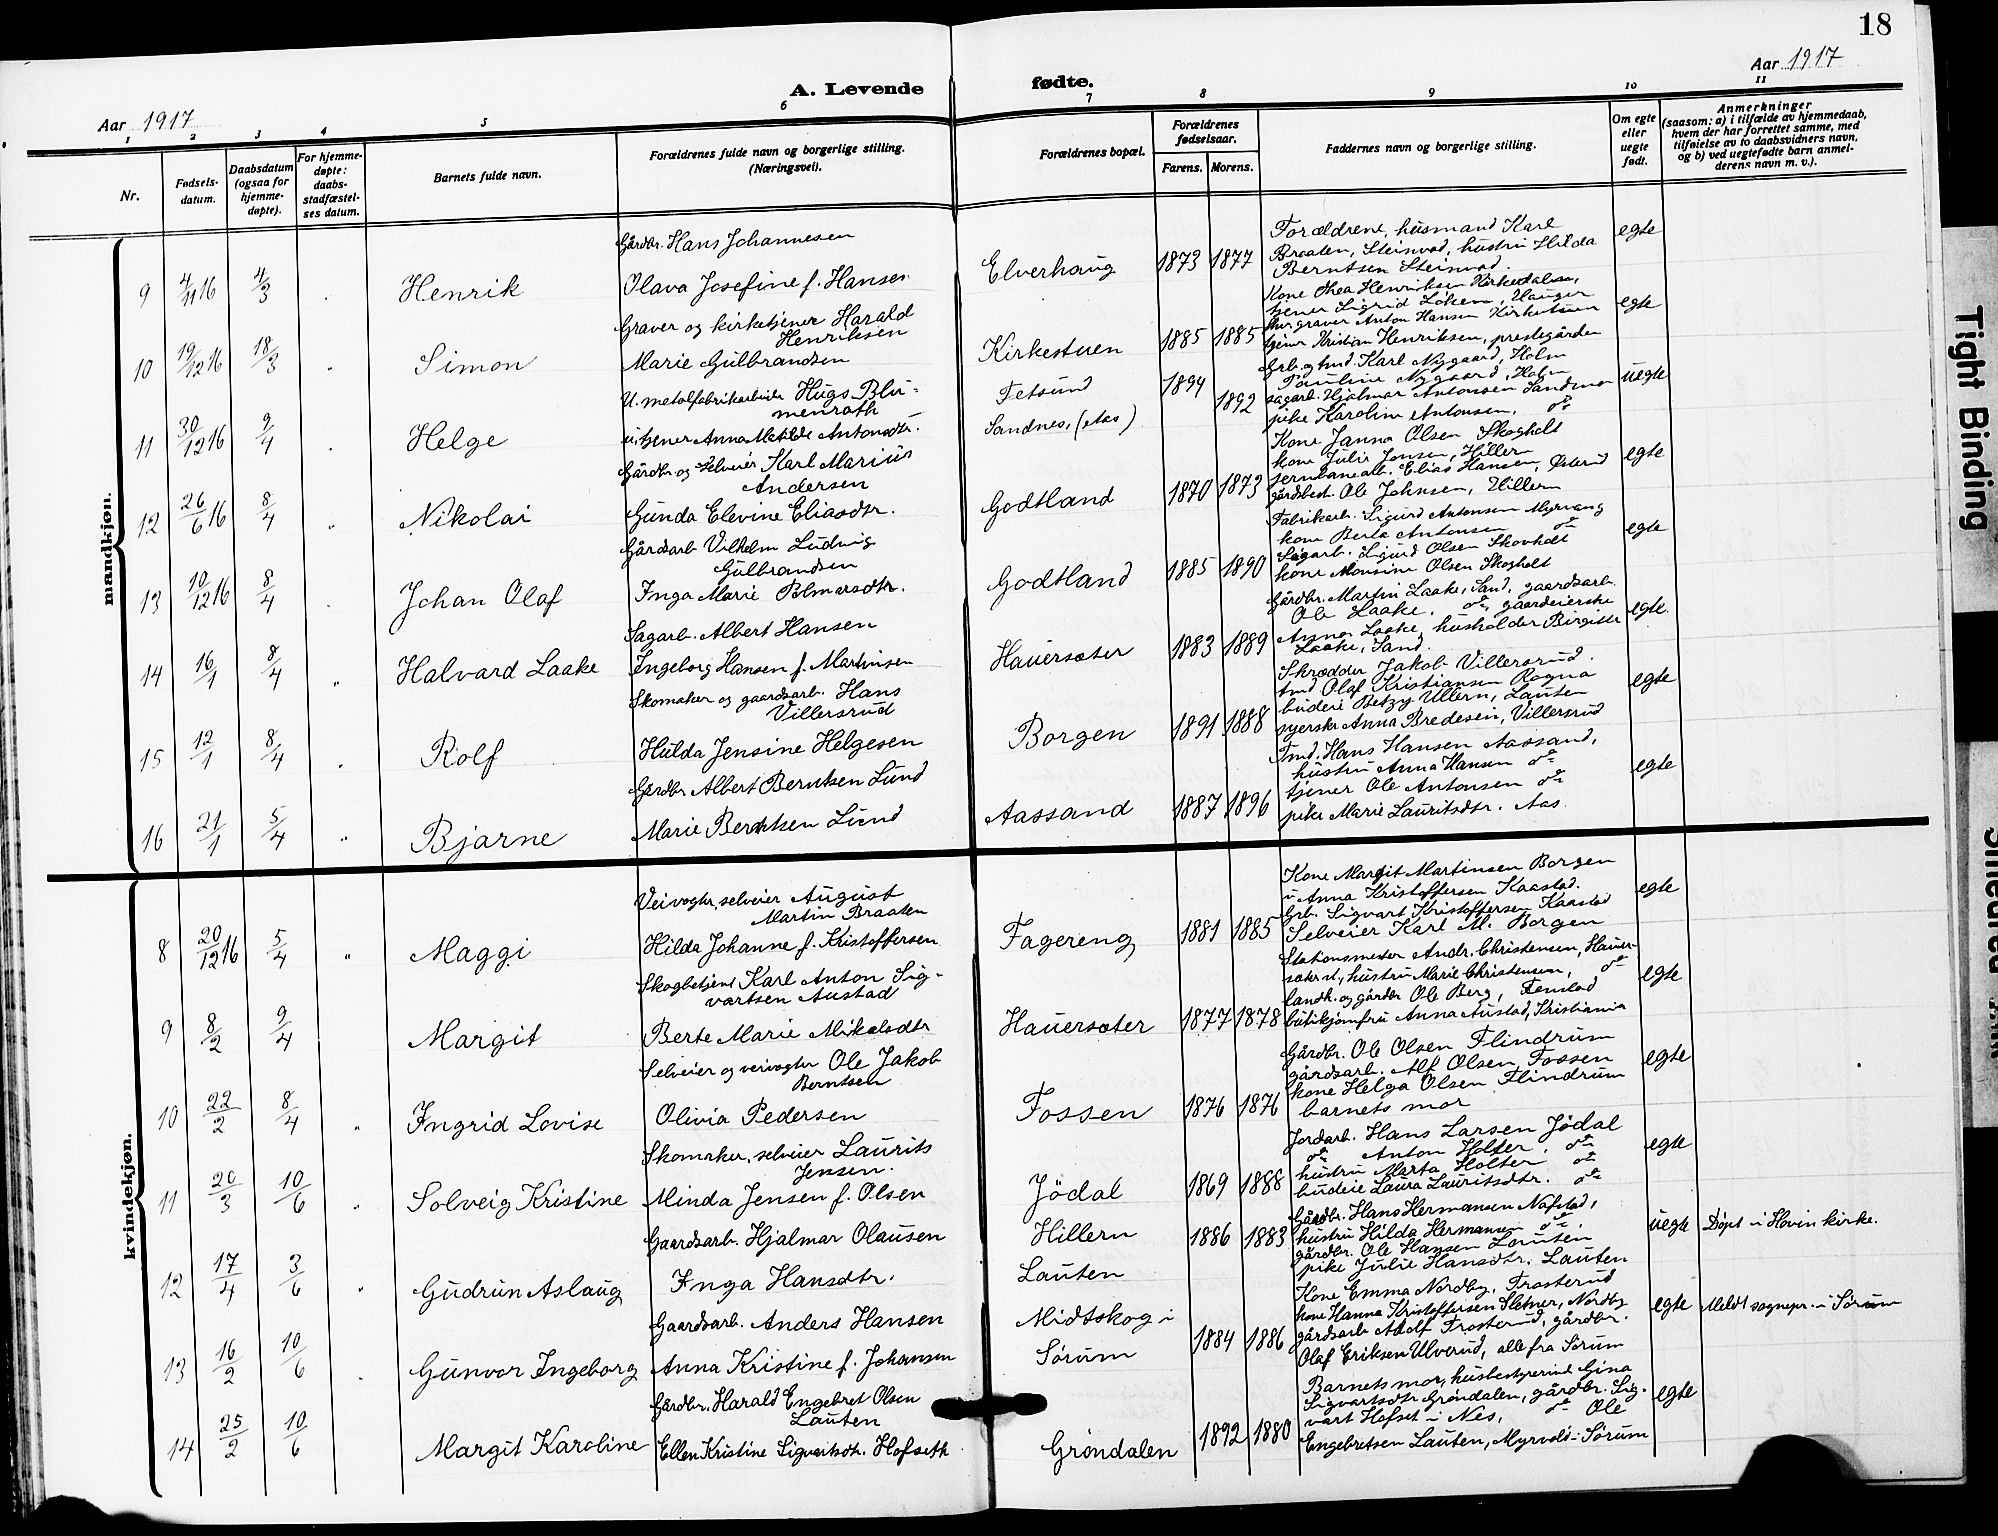 18
Aar 1917
A. Levende fødte.
Aar 1917
1 2 3 4 5 6 7 8 9 10 11
Nr.
Fødsels-
datum.
Daabsdatum
(ogsaa for
hjemme-
døpte).
For hjemme-
døpte:
daabs-
stadfæstel-
ses datum.
Barnets fulde navn.
Forældrenes fulde navn og borgerlige stilling.
(Næringsvei).
Forældrenes bopæl.
Forældrenes
fødselsaar.
Farens. Morens.
Faddernes navn og borgerlige stilling.
Om egte
eller
uegte
født.
Anmerkninger
(saasom: a) i tilfælde av hjemmedaab,
hvem der har forrettet samme, med
tilføielse av to daabsvidners navn,
og b) ved uegtefødte barn anmel-
derens navn m. v.).
mandkjøn.
9 4/11 16 4/3 Henrik
Gårdbr. Hans Johannesen
Olava Josefine f. Hansen
Elverhaug 1873 1877
Forældrene, husmand Karl
Braaten, Steinvad, hustru Hilda
Berntsen Steinvad.
egte
10 19/12 16 18/3 " Simon
Graver og kirketjener Harald
Henriksen
Marie Gulbrandsen
Kirkestuen 1885 1885
Kone Thea Henriksen Kirkedalen,
tjener Sigrid Løken, Hauger
graver Anton Hansen Kirkestuen
tjener Kristian Henriksen, prestegården
egte
11 30/12 16 9/4 " Helge
U. metalfabrikarbeider Hugo Blu-
menrath
u. tjener Anna Matilde Antonsdtr.
Fetsund 1894
Sandnes, (Aas) 1892
Grb. og tmd. Karl Nygaard, Holm
Pauline Nygaard, Holm
sagarb. Hjalmar Antonsen Sandnes
pike Karoline Antonsen. do
uegte
12 26/6 16 8/4 " Nikolai
Gårdbr. og selveier Karl Marius
Andersen
Gunda Elevine Eliasdtr.
Godtland 1870 1873
Kone Janna Olsen Skogholt
kone Julie Jensen, Hillern
jernbanearb. Elias Hansen, Østerud
gårdbest. Ole Johnsen, Hillern
egte
13 10/12 16 8/4 " Johan Olaf
Gårdsarb Vilhelm Ludvig
Gulbrandsen
Inga Marie Palmarsdtr.
Godtland 1885 1890
Fabrikarb. Sigurd Antonsen Myrvang
kone Berta Antonsen do
Sagarb. Sigurd Olsen Skovholt
kone Monsine Olsen Skogholt
egte
14 16/1 8/4 " Halvard Laake
Sagarb. Albert Hansen
Ingeborg Hansen f. Martinsen
Hauersæter 1883 1889
Gårdbr. Martin Laake, Sand, gaardsarb.
Ole Laake, do, gaardeierske
Anna Laake, husholder Birgitte
Laake, Sand.
egte.
15 12/1 8/4 " Rolf
Skomaker og gaardsarb. Hans
Villersrud
Hulda Jensine Helgesen
Borgen 1891 1888
Skrædder Jakob Villersrud.
tmd Olaf Kristiansen Rogna
budeie Betzy Ullern, Lauten
syerske Anna Bredesen, Villersrud
egte
16 21/1 5/4 " Bjarne
Gårdbr Albert Berntsen Lund
Marie Berntsen Lund
Aassand 1887 1896
Tmd. Hans Hansen Aassand,
hustru Anna Hansen do
tjener Ole Antonsen do
pike Marie Lauritsdtr. Aas.
egte
kvindekjøn.
8 20/12 16 5/4 " Maggi
Veivogter, selveier August
Martin Braaten
Hilda Johanne f. Kristoffersen
Fagereng 1881 1885
Kone Margit Martinsen Borgen
u Anna Kristoffersen Kaastad.
Grb. Sigvart Kristoffersen Kaastad
Selveier Karl M. Borgen
egte
9 8/2 9/4 Margit
Skogbetjent Karl Anton Sig-
vartsen Austad
Berte Marie Mikalsdtr
Hauersæter 1877 1878
Stationsmester Andr. Christensen, Hauer-
sæter st., hustru Marie Christensen, do
landh. og gårdbr Ole Berg, Fenstad
butikjomfru Anna Austad, Kristiania
egte
10 22/2 8/4 " Ingrid Lovise
Selveier og veivogter Ole Jakob
Berntsen
Olivia Pedersen
Fossen 1876 1876
Gårdbr. Ole Olsen Flindrum
gårdsarb. Alf Olsen, Fossen
kone Helga Olsen Flindrum
barnets mor
egte
11 20/3 10/6 " Solveig Kristine
Skomaker, selveier Laurits
Jensen.
Minda Jensen f. Olsen
Jödal 1869 1888
Jordarb. Hans Larsen Jödal
do Anton Holter. do
hustru Marta Holter do
budeie Laura Lauritsdtr. do
egte
12 17/4 3/6 " Gudrun Aslaug
Gaardsarb. Hjalmar Olausen
Inga Hansdtr.
Hillern 1886 1883
Lauten
Gårdbr. Hans Hermansen Nafstad,
hustru Hilda Hermansen do.
gårdbr. Ole Hansen Lauten
pike Julie Hansdtr. Lauten
uegte Döpt i Hovin kirke.
13 16/2 10/6 " Gunvor Ingeborg
Gaardsarb. Anders Hansen
Anna Kristine f. Johansen
Midtskog i
Sørum 1884 1886
Kone Emma Nordby, Trosterud
kone Hanna Kristoffersen Sletner, Nordby
gårdsarb Adolf Trosterud, gårdbr.
Olaf Eriksen Ulverud, alle fra Sørum
egte Meldt sognepr. i Sørum
14 25/2 10/6 Margit Karoline
Gårdbr. Harald Engebret Olsen
Lauten
Ellen Kristine Sigvartsdtr. Hofseth
Gröndalen 1892 1880
Barnets mor, husbestyrerinde Gina
Sigvartsdtr Gröndalen, gårdbr. Sig-
vart Hofset i Nes, do Ole
Engebretsen Lauten, Myrvold i Sørum
egte
Tight Binding